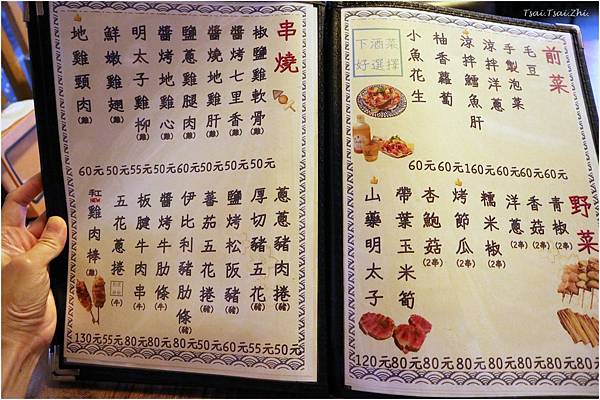 Tsai.Tsai.Zhi.
前菜
毛豆
手製泡菜
涼拌洋蔥
涼拌鱈魚肝
柚香蘿蔔
小魚花生
下酒菜
好選擇
60元60元160元60元60元60元
野菜
青椒(2串)
香菇(2串)
洋蔥(2串)
糯米椒(2串)
烤節瓜(2串)
杏鮑菇(2串)
帶葉玉米筍
山藥明太子
120元80元80元80元80元80元80元80元
串燒
椒鹽雞軟骨(雞)
鹽烤七里香(雞)
蔥燒地雞肝(雞)
醬蔥雞腿肉(雞)
醬烤地雞心(雞)
明太子雞柳(雞)
鮮嫩雞翅(雞)
地雞頸肉(雞)
60元50元55元50元60元50元50元50元
蔥蔥豬肉捲(豬)
厚切豬五花(豬)
鹽烤松阪豬(豬)
蕃茄五花捲(豬)
伊比利豬肋條(豬)
醬烤牛肋條(牛)
板腱牛肉串(牛)
五花蔥捲(牛)
手工NEW雞肉棒(雞)
130元55元80元80元80元50元60元55元50元